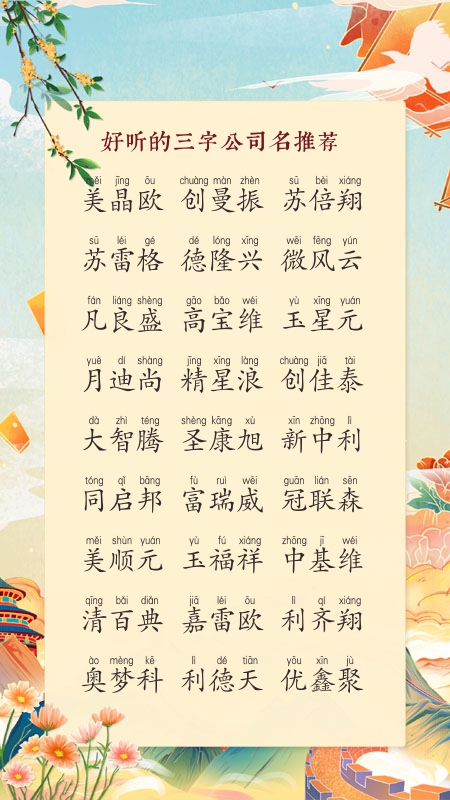 好听的三字公司名推荐
měi jīng ōu chuàng màn zhèn sū bèi xiáng
美晶欧 创曼振 苏倍翔
sū léi gé dé lóng xīng wēi fēng yún
苏雷格 德隆兴 微风云
fán liáng shèng gāo bǎo wéi yù xīng yuán
凡良盛 高宝维 玉星元
yuè dí shàng jīng xīng làng chuàng jiā tài
月迪尚 精星浪 创佳泰
dà zhì téng shèng kāng xù xīn zhōng lì
大智腾 圣康旭 新中利
tóng qǐ bāng fù ruì wēi guān lián sēn
同启邦 富瑞威 冠联森
měi shùn yuán yù fú xiáng zhōng jī wéi
美顺元 玉福祥 中基维
qīng bǎi diǎn jiā léi ōu lì qí xiáng
清百典 嘉雷欧 利齐翔
ào mèng kē lì dé tiān yōu xīn jù
奥梦科 利德天 优鑫聚